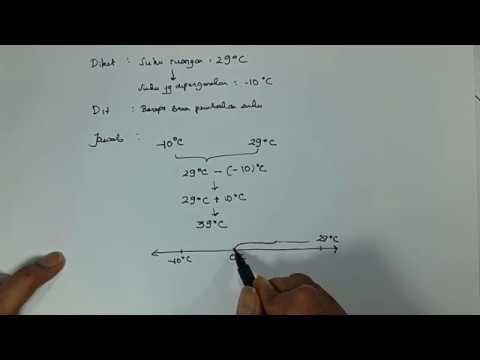 Diket : Suhu ruangan : 29°C
↓
Suhu yg dipergunakan : -10°C
Dit : Berapa besar perubahan suhu
Jawab :
-10°C 29°C
29°C - (-10)°C
↓
29°C + 10°C
↓
39°C
29°C
-10°C